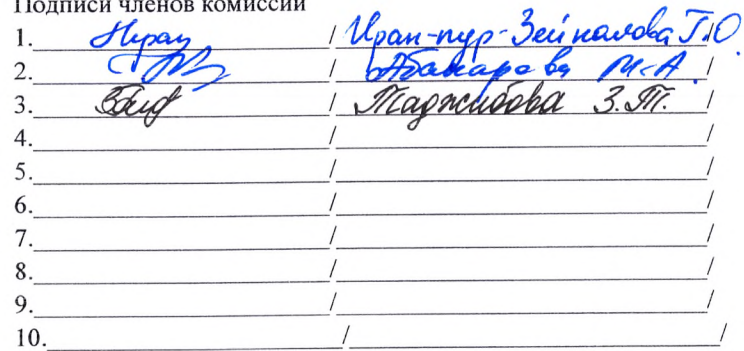 Подписи членов комиссии
1. / Иран-пур-Зейналова Г.О.
2. / Абакарова М.А. /
3. / Таджибова З.Т. /
4. / /
5. / /
6. / /
7. / /
8. / /
9. / /
10. / /